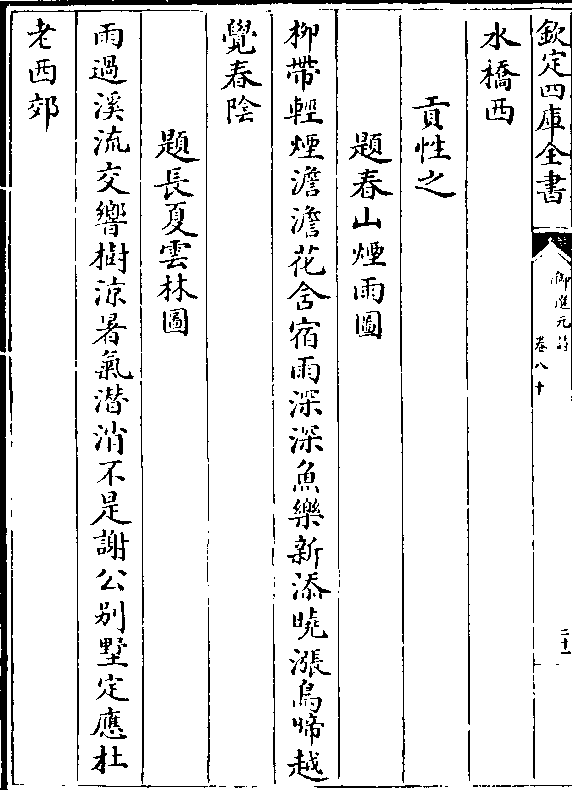 欽定四庫全書
御選元詩
卷八十
二十一
水橋西
貢性之
題春山煙雨圖
柳帶輕煙澹澹花舍宿雨深深魚樂新添曉漲鳥啼越
覺春陰
題長夏雲林圖
雨過溪流交響樹涼暑氣潜消不是謝公别墅定應杜
老西郊